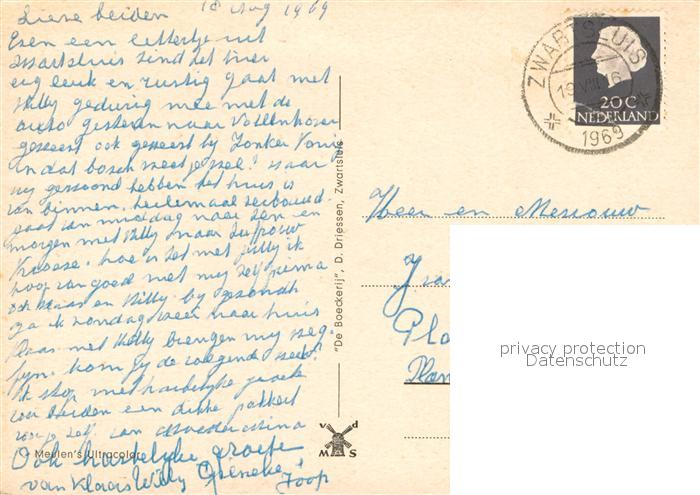 18 Aug 1969
Lieve beiden
Even een lettertje uit
Zwartsluis vind het hier
erg leuk en rustig gaat met
Willy gedurig mee met de
auto gisteren naar Vollenhove
geweest ook geweest by Jonker
in dat bosch weet je wel? waar
wy gewoond hebben het huis is
van binnen heelemaal verbouwd.
gaat van middag naar en
morgen met Willy naar Jufrouw
hoe is het met jully ik
hoop van goed met my zelf prima
ook Klaas en Willy by gezondh
ga ik zondag weer naar huis
Klaas met Willy brengen my weg.
fyn. kom jy de volgende week?
Ik stop met hartelyke groete
voor beiden een dikke pakkert
voor je zelf van Moeder
Ook hartelyke groetje
van Klaas Willy Gieneke
Joop
Meulen's Ultracolor
"De Boeckerij", D. Driessen, Zwartsluis
v d
M S
ZWARTSLUIS
19 VIII 16
1969
20 C
NEDERLAND
Heer en Mevrouw
Pla
Plan
privacy protection
Datenschutz